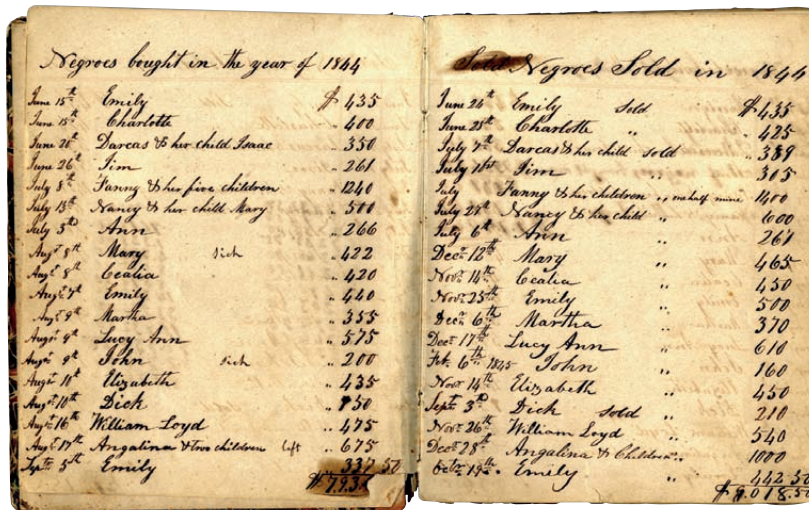 Negroes bought in the year of 1844
June 15th Emily $ 435
June 15th Charlotte " 400
June 20th Darcas & her child Isaac " 350
June 26th Jim " 261
July 8th Fanny & her five children " 1240
July 13th Nancy & her child Mary " 500
July 5th Ann " 266
Augt 8th Mary sick " 422
Augt 8th Cealia " 420
Augt 7th Emily " 440
Augt 8th Martha " 355
Augt 9th Lucy Ann " 575
Augt 9th John sick " 200
Augt 10th Elizabeth " 435
Augt 10th Dick " 150
Augt 16th William Loyd " 475
Augt 17th Angalina & two children left " 675
Septr 5th Emily 337 50
$ 793
Sold Negroes Sold in 1844
June 24th Emily sold $ 435
June 25th Charlotte " 425
July 7th Darcas & her child sold " 389
July 1st Jim " 305
July Fanny & her children " one half mine 1400
July 27th Nancy & her child " 600
July 6th Ann " 261
Decr 12th Mary " 465
Novr 14th Cealia " 450
Novr 25th Emily " 500
Decr 6th Martha " 370
Decr 17th Lucy Ann " 610
Feb. 6th 1845 John " 160
Novr 14th Elizabeth " 450
Septr 3rd Dick sold " 210
Novr 26th William Loyd " 540
Decr 28th Angalina & Children " 1000
Octr 19th Emily " 442 50
$ 9.018.50